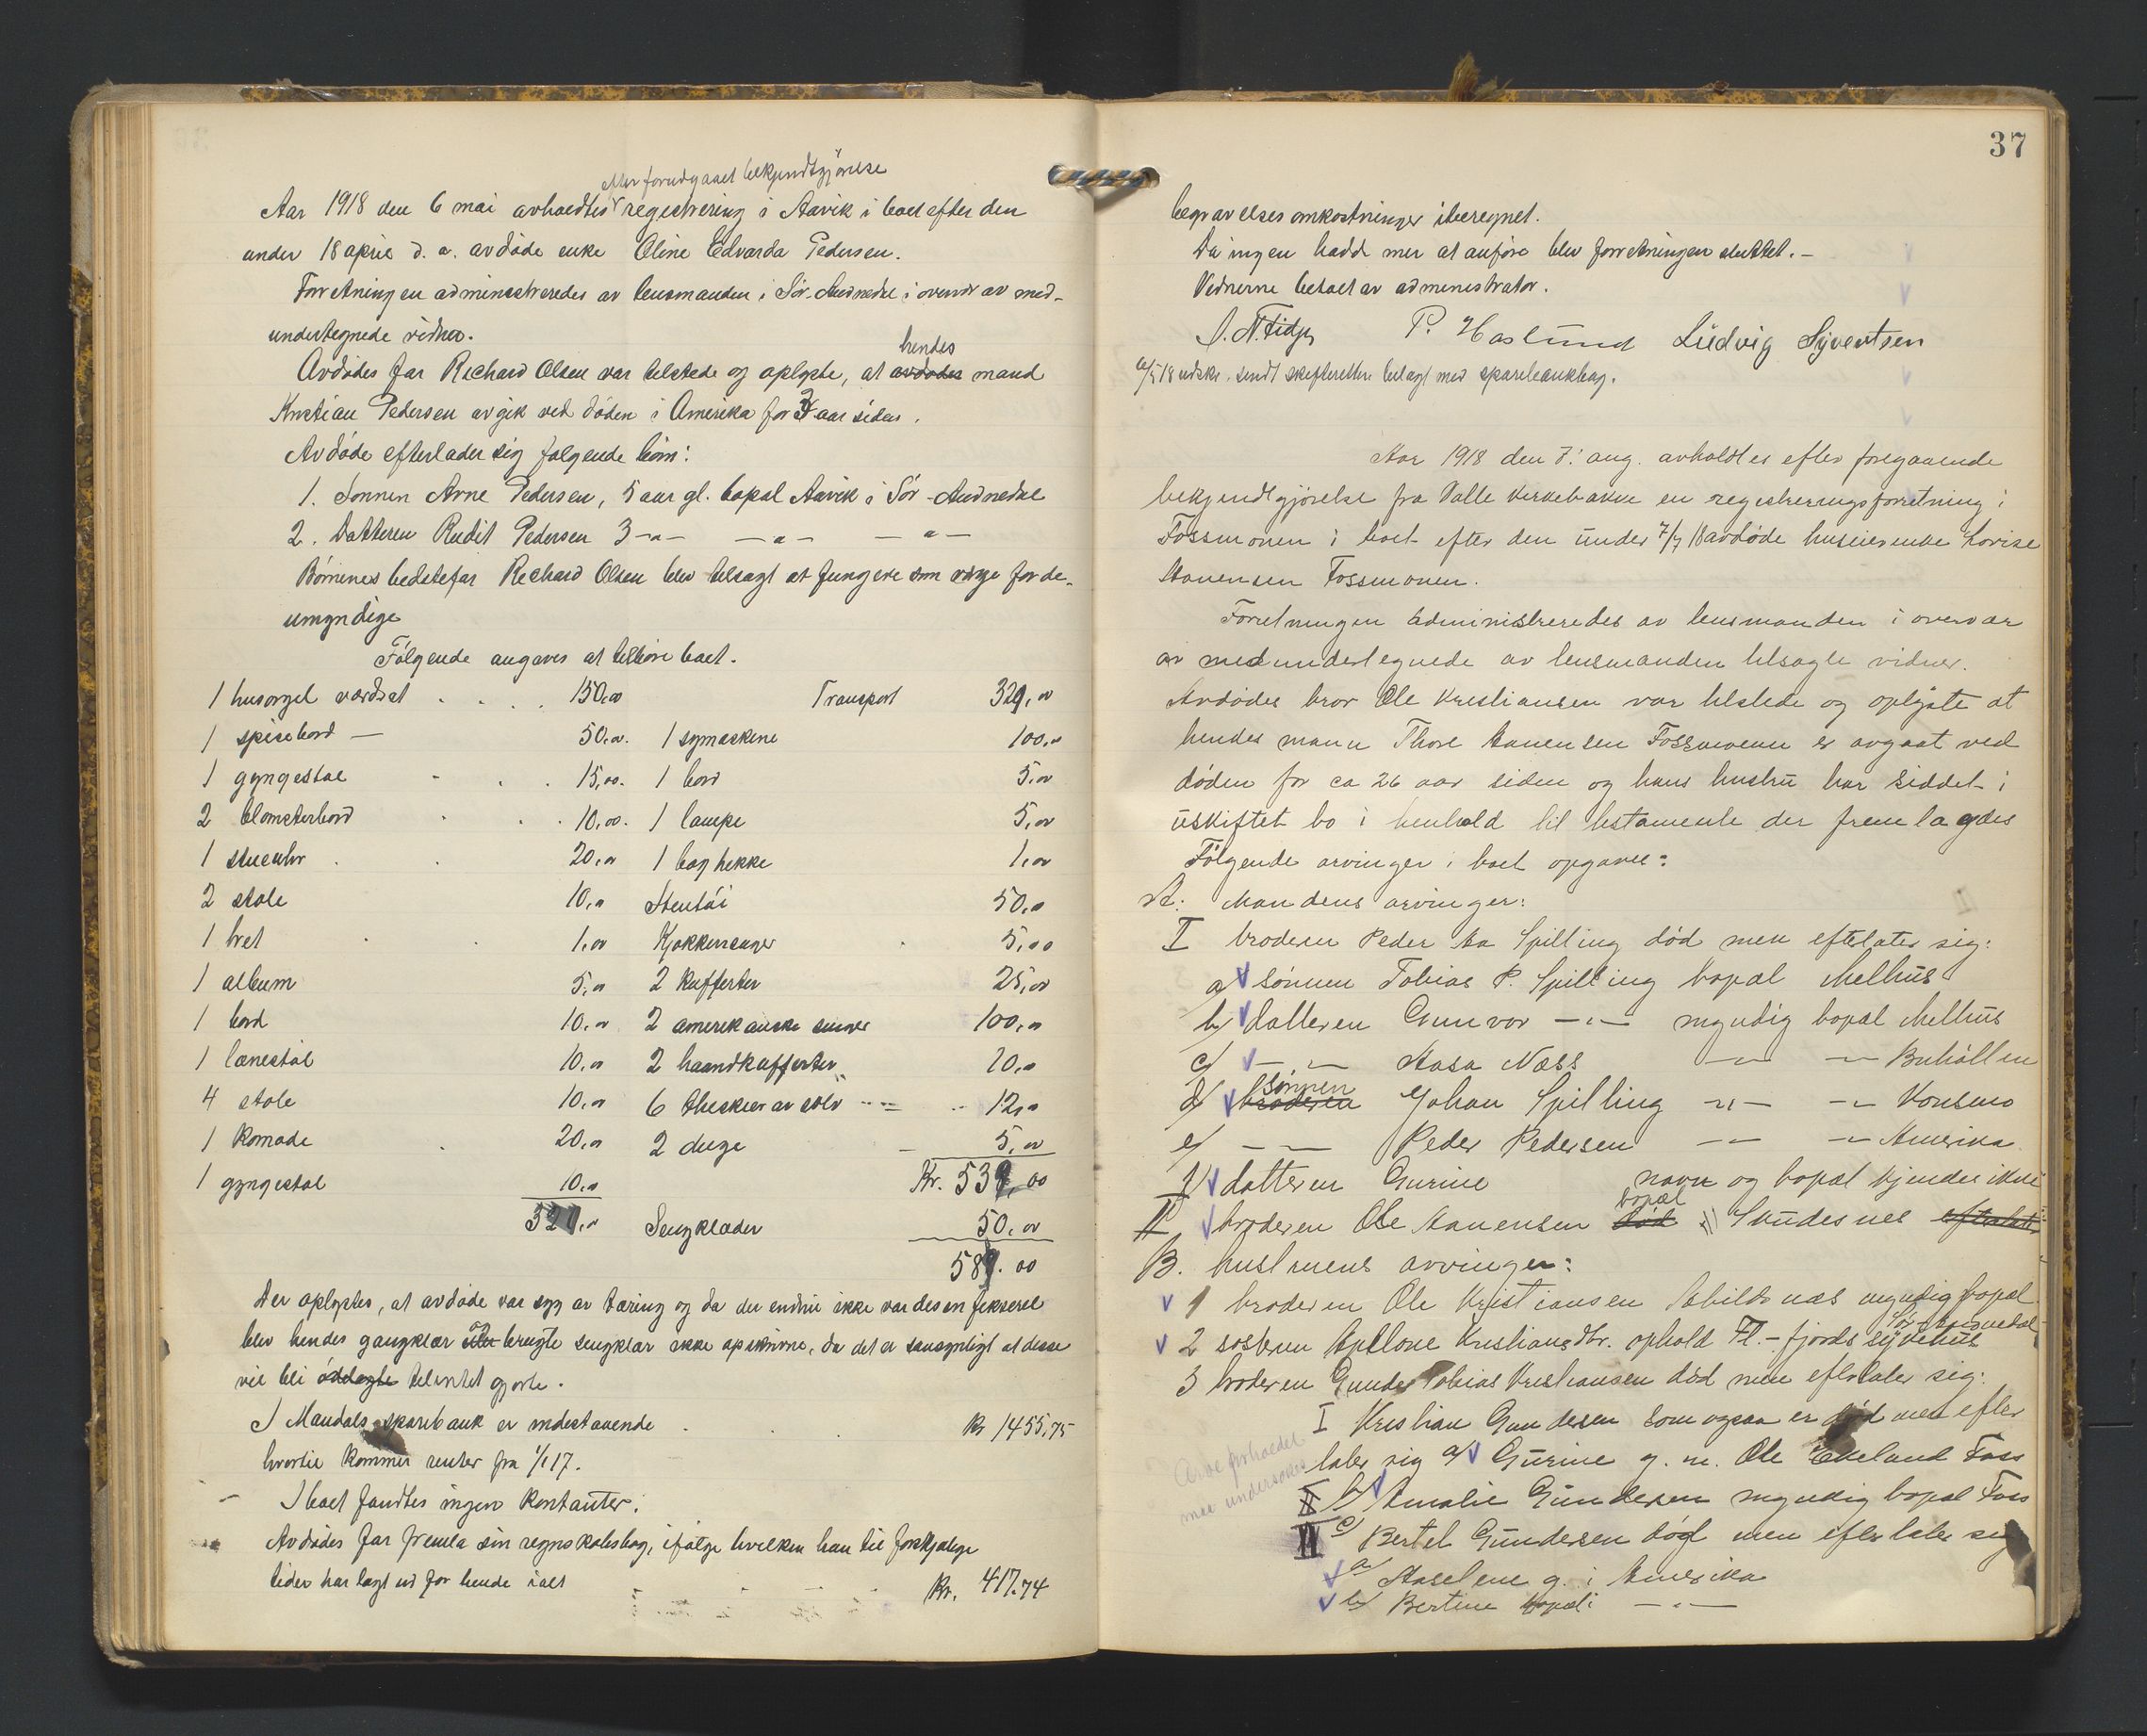 efter forudgaaet bekjendtgjörelse
Aar 1918 den 6 mai avholdtes registrering i Aavik i boet efter den
under 18 april d. a. avdöde enke Oline Edvarda Pedersen.
Forretningen administreredes av lensmanden i Sör-Audnedal i overvær av med-
undertegnede vidner.
hendes
Avdödes far Richard Olsen var tilstede og oplyste, at avdödes mand
Kristian Pedersen avgik ved döden i Amerika for 3 aar siden.
Avdöde efterlader sig følgende börn:
1. Sönnen Arne Pedersen, 5 aar gl. bopæl Aavik i Sör-Audnedal
2. Datteren Rudit Pedersen 3 -"- -"- -"-
Börnenes bedstefar Richard Olsen blev tilsagt at fungere som værge for de
umyndige
Fölgende angaves at tilhöre boet.
1 husorgel værdsat 150,00 Transport 329,00
1 spisebord — 50,00. 1 symaskine 100,00
1 gyngestol 15,00. 1 bord 5,00
2 blomsterbord 10,00. 1 lampe 5,00
1 stueuhr 20,00 1 boghekke 1,00
2 stole 10,00 Stentöi 50,00
1 bret 1,00 Kjøkkensager 5,00
1 album 5,00 2 Kufferter 25,00
1 bord 10,00 2 amerikanske senger 100,00
1 lænestol 10,00 2 haandkufferter 20,00
4 stole 10,00 6 theskeer av sölv 12,00
1 Komode 20,00 2 duge 5,00
1 gyngestol 10,00 Kr. 539,00
321,00 Sengklæder 50,00
589.00
Der oplystes, at avdöde var syg av tæring og da der endnu ikke var desenfekseret
blev hendes gangklær og brugte sengklær ikke opskrevne, da det er sansynligt at disse
vil bli ödelagte telintet gjorte.
I Mandals sparebank er indestaaende Kr 1455,75
hvortil kommer renter fra 1/1 17.
I boet fandtes ingen Kontanter.
Avdödes far fremla sin regnskabsbog, ifölge hvilken han til forskjelige
tider har lagt ud for hende ialt Kr. 417.74
37
begravelsesomkostninger iberegnet.
Da ingen hadd mer at anföre blev forretningen sluttet. –
Vidnerne betalt av administrator.
P. Haslund Ludvig Syvertsen
/5 18 udskr. sendt skifteretten bilagt med sparebankbog.
Aar 1918 den 7. aug. avholdtes efter foregaaende
bekjendtgjörelse fra Valle kirkebakke en registreringsforretning i
Fossmonen i boet efter den under 7/7 18 avdøde huseierenke Lovise
Aanensen Fossmonen.
Forretningen administreredes av lensmanden i overvær
av medundertegnede av lensmanden tilsagte vidner.
Avdödes bror Ole Kristiansen var tilstede og oplyste at
hendes mann Thore Aanensen Fossmonen er avgaat ved
döden for ca 26 aar siden og hans hustru har siddet i
uskiftet bo i henhold til testamente der fremlagdes
Fölgende arvinger i boet opgaves:
A: Mandens arvinger:
I broderen Peder Aa Spilling död men efterlater sig:
a) sönnen Tobias P. Spilling bopæl Melhus
b) datteren Gunvor -"- myndig bopæl Melhus
c) -"- Aasa Næss -"- -"- Buhöllen
sönnen
d) broderen Johan Spilling -"- -"- Konsmo
e) -"- Peder Pedersen -"- -"- Amerika
f) datteren Gurine navn og bopæl kjender ikke
bopæl
II broderen Ole Aanensen död Skudesnes efterlater
B. hustruens arvinger:
1 broderen Ole Kristiansen myndig bopæl
Sör-Audnedal
2 søsteren Apelone Kristiansdtr. ophold Fl.-fjords sykehus
3 broderen Gunder Tobias Kristiansen död men efterlater sig:
I Kristian Gundersen som ogsaa er död men efter
later sig a) Gurine g. m. Ole Eikeland Foss
Arveforholdet
maa undersøkes
II b) Amalie Gundersen myndig bopæl Foss
II c) Bertel Gundersen död men efterlater sig
a) Aaselene g. i Amerika
b) Bertine bopæl i -"-